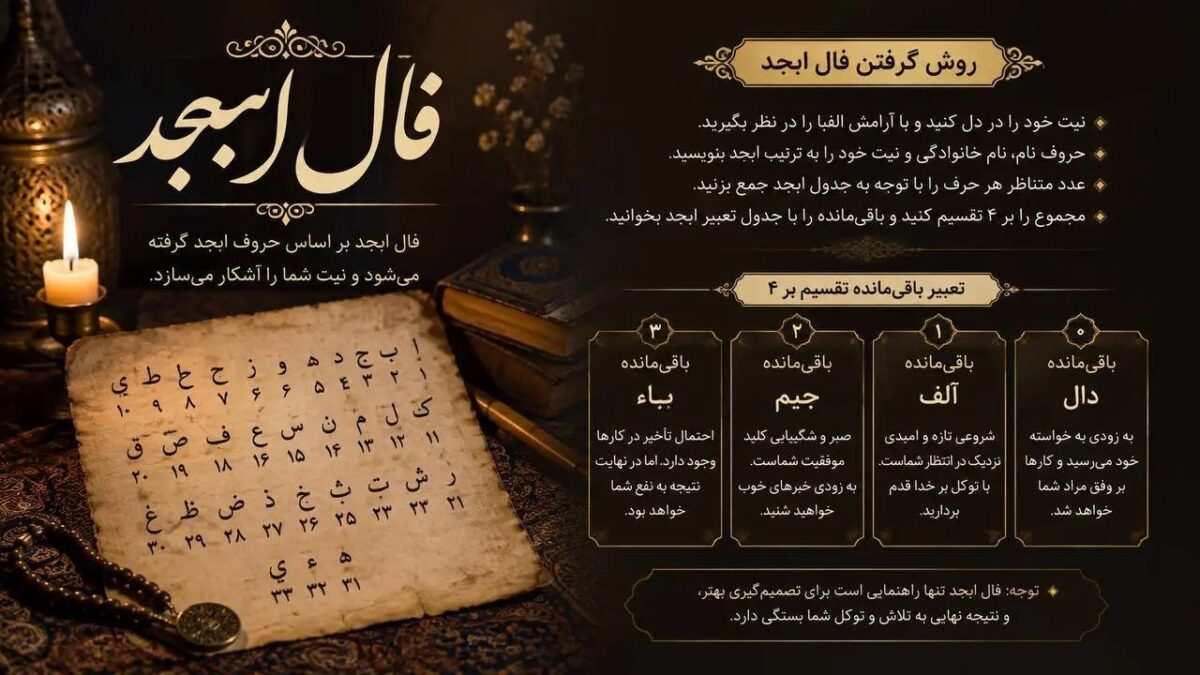 فال ابجد
فال ابجد بر اساس حروف ابجد گرفته
می‌شود و نیت شما را آشکار می‌سازد.
ا ب ج د ه و ز ح ح ط ي
۱ ۲ ۳ ٤ ۵ ۶ ۶ ۷ ۸ ۹ ۱۰
ک ل م ن س ع ف ص ق
۱۱ ۱۲ ۱۳ ۱۴ ۱۵ ۱۶ ۱۸ ۱۹ ۲۰
ر ش ت ث خ ذ ض ظ غ
۲۱ ۲۳ ۲۳ ۲۵ ۲۶ ۲۷ ۲۸ ۲۹ ۳۰
ه ء ي
۳۱ ۳۲ ۳۳
روش گرفتن فال ابجد
نیت خود را در دل کنید و با آرامش الفبا را در نظر بگیرید.
حروف نام، نام خانوادگی و نیت خود را به ترتیب ابجد بنویسید.
عدد متناظر هر حرف را با توجه به جدول ابجد جمع بزنید.
مجموع را بر ۴ تقسیم کنید و باقی‌مانده را با جدول تعبیر ابجد بخوانید.
تعبیر باقی‌مانده تقسیم بر ۴
۰
باقی‌مانده
دال
به زودی به خواسته
خود می‌رسید و کارها
بر وفق مراد شما
خواهد شد.
۱
باقی‌مانده
آلف
شروعی تازه و امیدی
نزدیک در انتظار شماست.
با توکل بر خدا قدم
بردارید.
۲
باقی‌مانده
جیم
صبر و شگیبایی کلید
موفقیت شماست.
به زودی خبرهای خوب
خواهید شنید.
۳
باقی‌مانده
بباء
احتمال تأخیر در کارها
وجود دارد. اما در نهایت
نتیجه به نفع شما
خواهد بود.
توجه: فال ابجد تنها راهنمایی است برای تصمیم‌گیری بهتر،
و نتیجه نهایی به تلاش و توکل شما بستگی دارد.